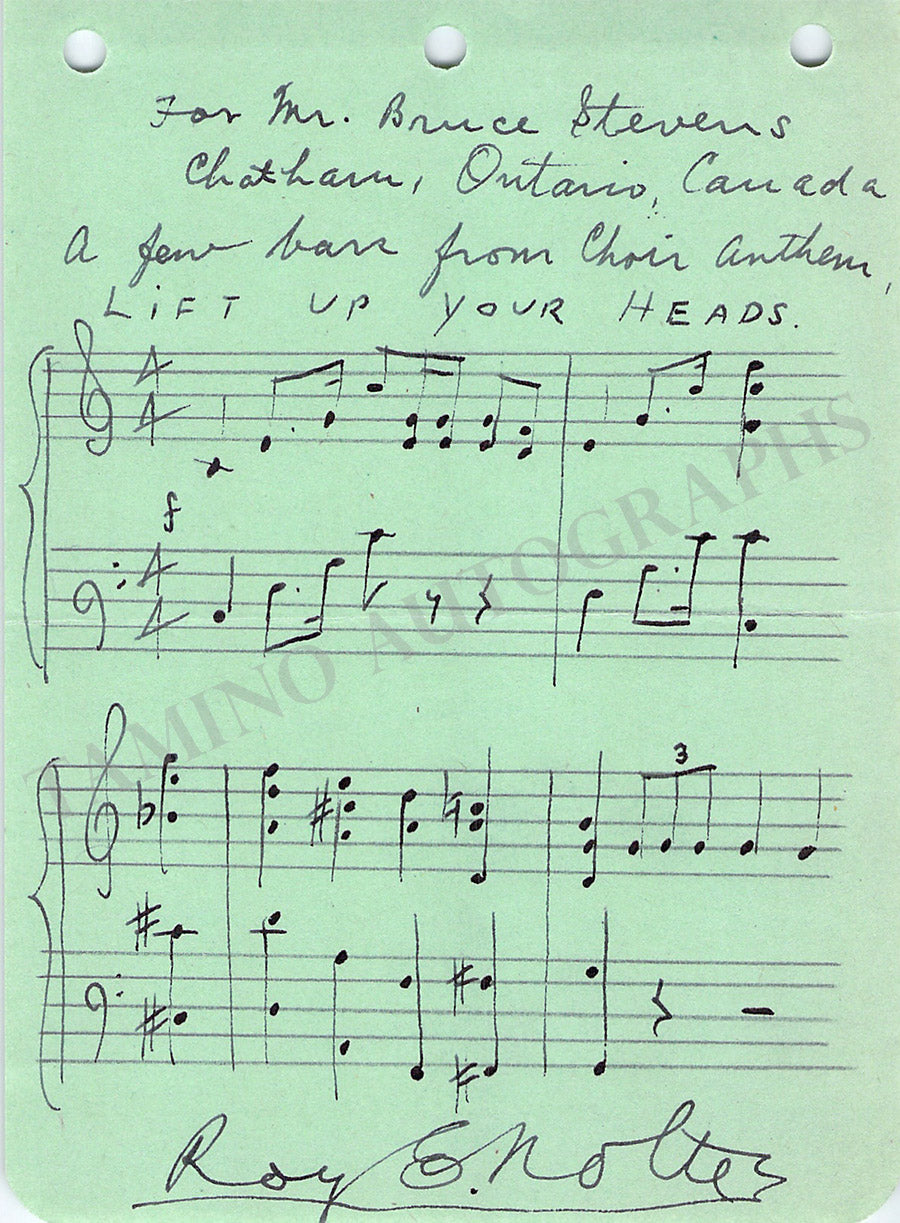 For Mr. Bruce Stevens
Chatham, Ontario, Canada
A few bars from Choir Anthem,
LiFT UP YOUR HEADS.
4
4
f
4
4
3
Roy E. Nolte
TAMINO AUTOGRAPHS